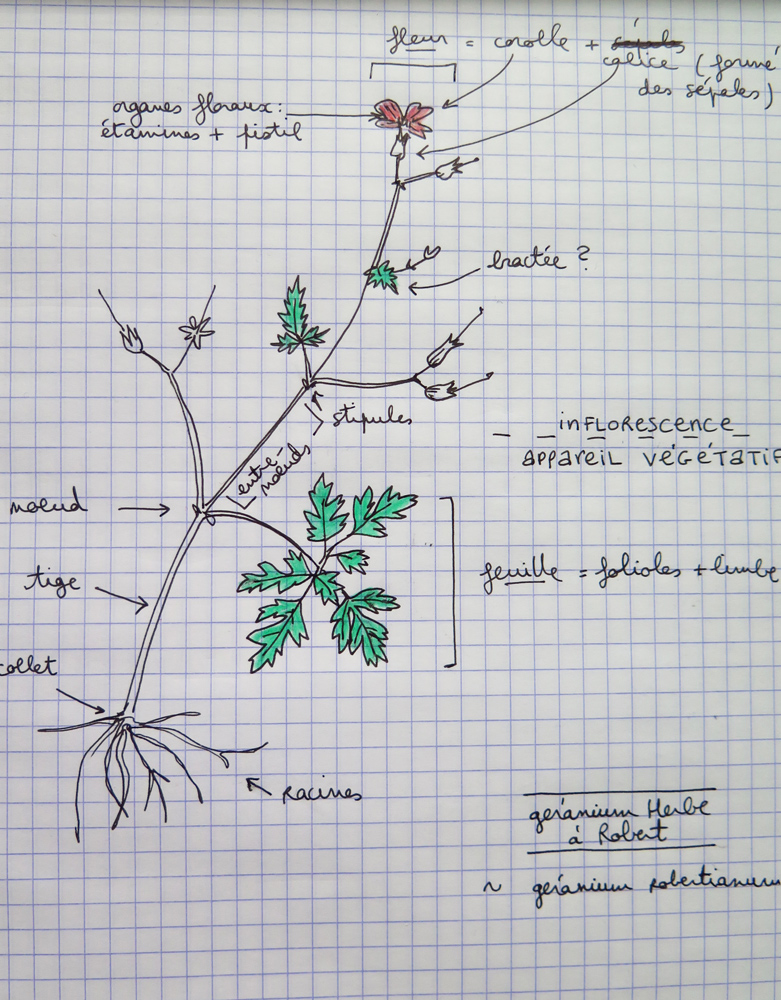 fleur = corolle + calice (formé
des sépales)
organes floraux :
étamines + pistil
bractée ?
stipules
entre-
noeuds
_ _inFLORESCENCE_
APPAREIL VÉGÉTATIF
noeud
feuille = folioles + limbe
tige
collet
racines
géranium Herbe
à Robert
~ géranium robertianum